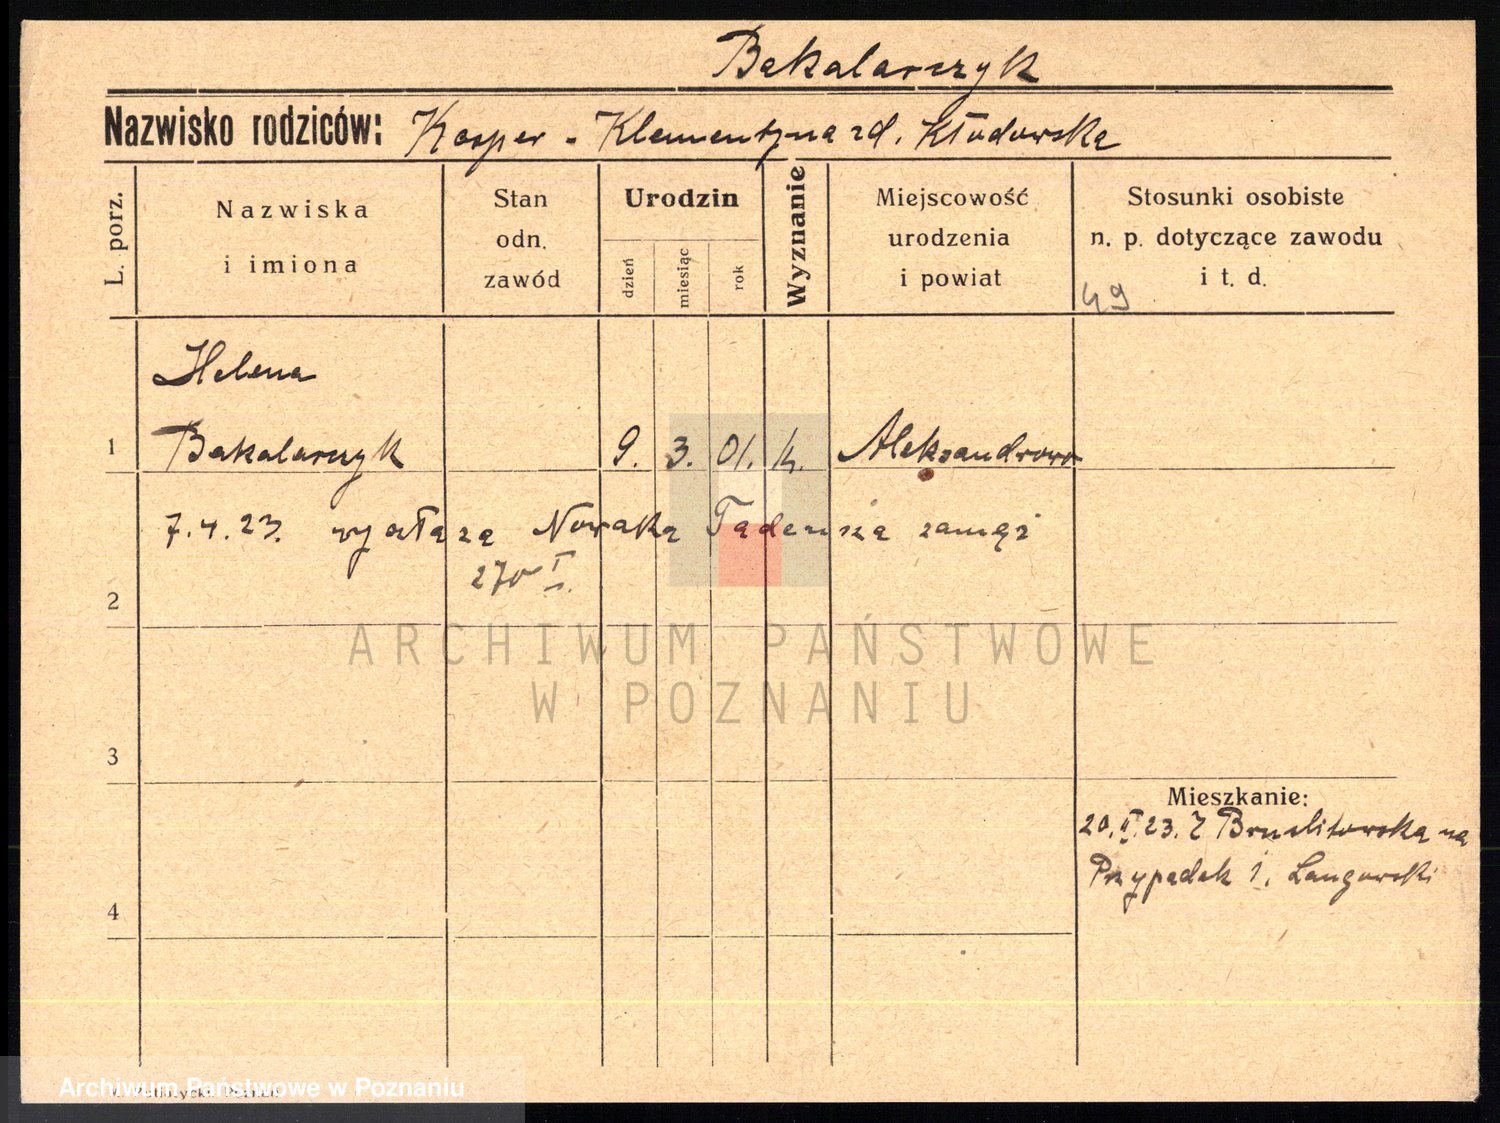 Bakalarczyk
Nazwisko rodziców: Kasper - Klementyna zd. Kłudowska
L. porz.
Nazwiska
i imiona
Stan
odn.
zawód
Urodzin
dzień
miesiąc
rok
Wyznanie
Miejscowość
urodzenia
i powiat
Stosunki osobiste
n. p. dotyczące zawodu
i t. d.
49
Helena
1 Bakalarczyk 9. 3. 01. k. Aleksandrowo
7.4.23. Nowaka Tadeusza zamąż
270 I
2
3
4
Mieszkanie:
20.II.23. Z na
Przypadek 1. Langowski
ARCHIWUM PAŃSTWOWE
W POZNANIU
Archiwum Państwowe w Poznaniu